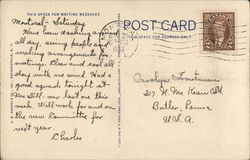 THIS SPACE FOR WRITING MESSAGES
POST CARD
THIS SPACE FOR ADDRESS ONLY
Montreal - Saturday
Have been dashing around
all day, seeing people and
making arrangements for
meetings. Clear and cool all
day with no wind. Had a
good squash tonight at
McGill, our last one this
week. Will work for and on
the new Committee for
next year.
Charles
Carolyn
317 N. McKean St.
Butler, Penna
U.S.A.